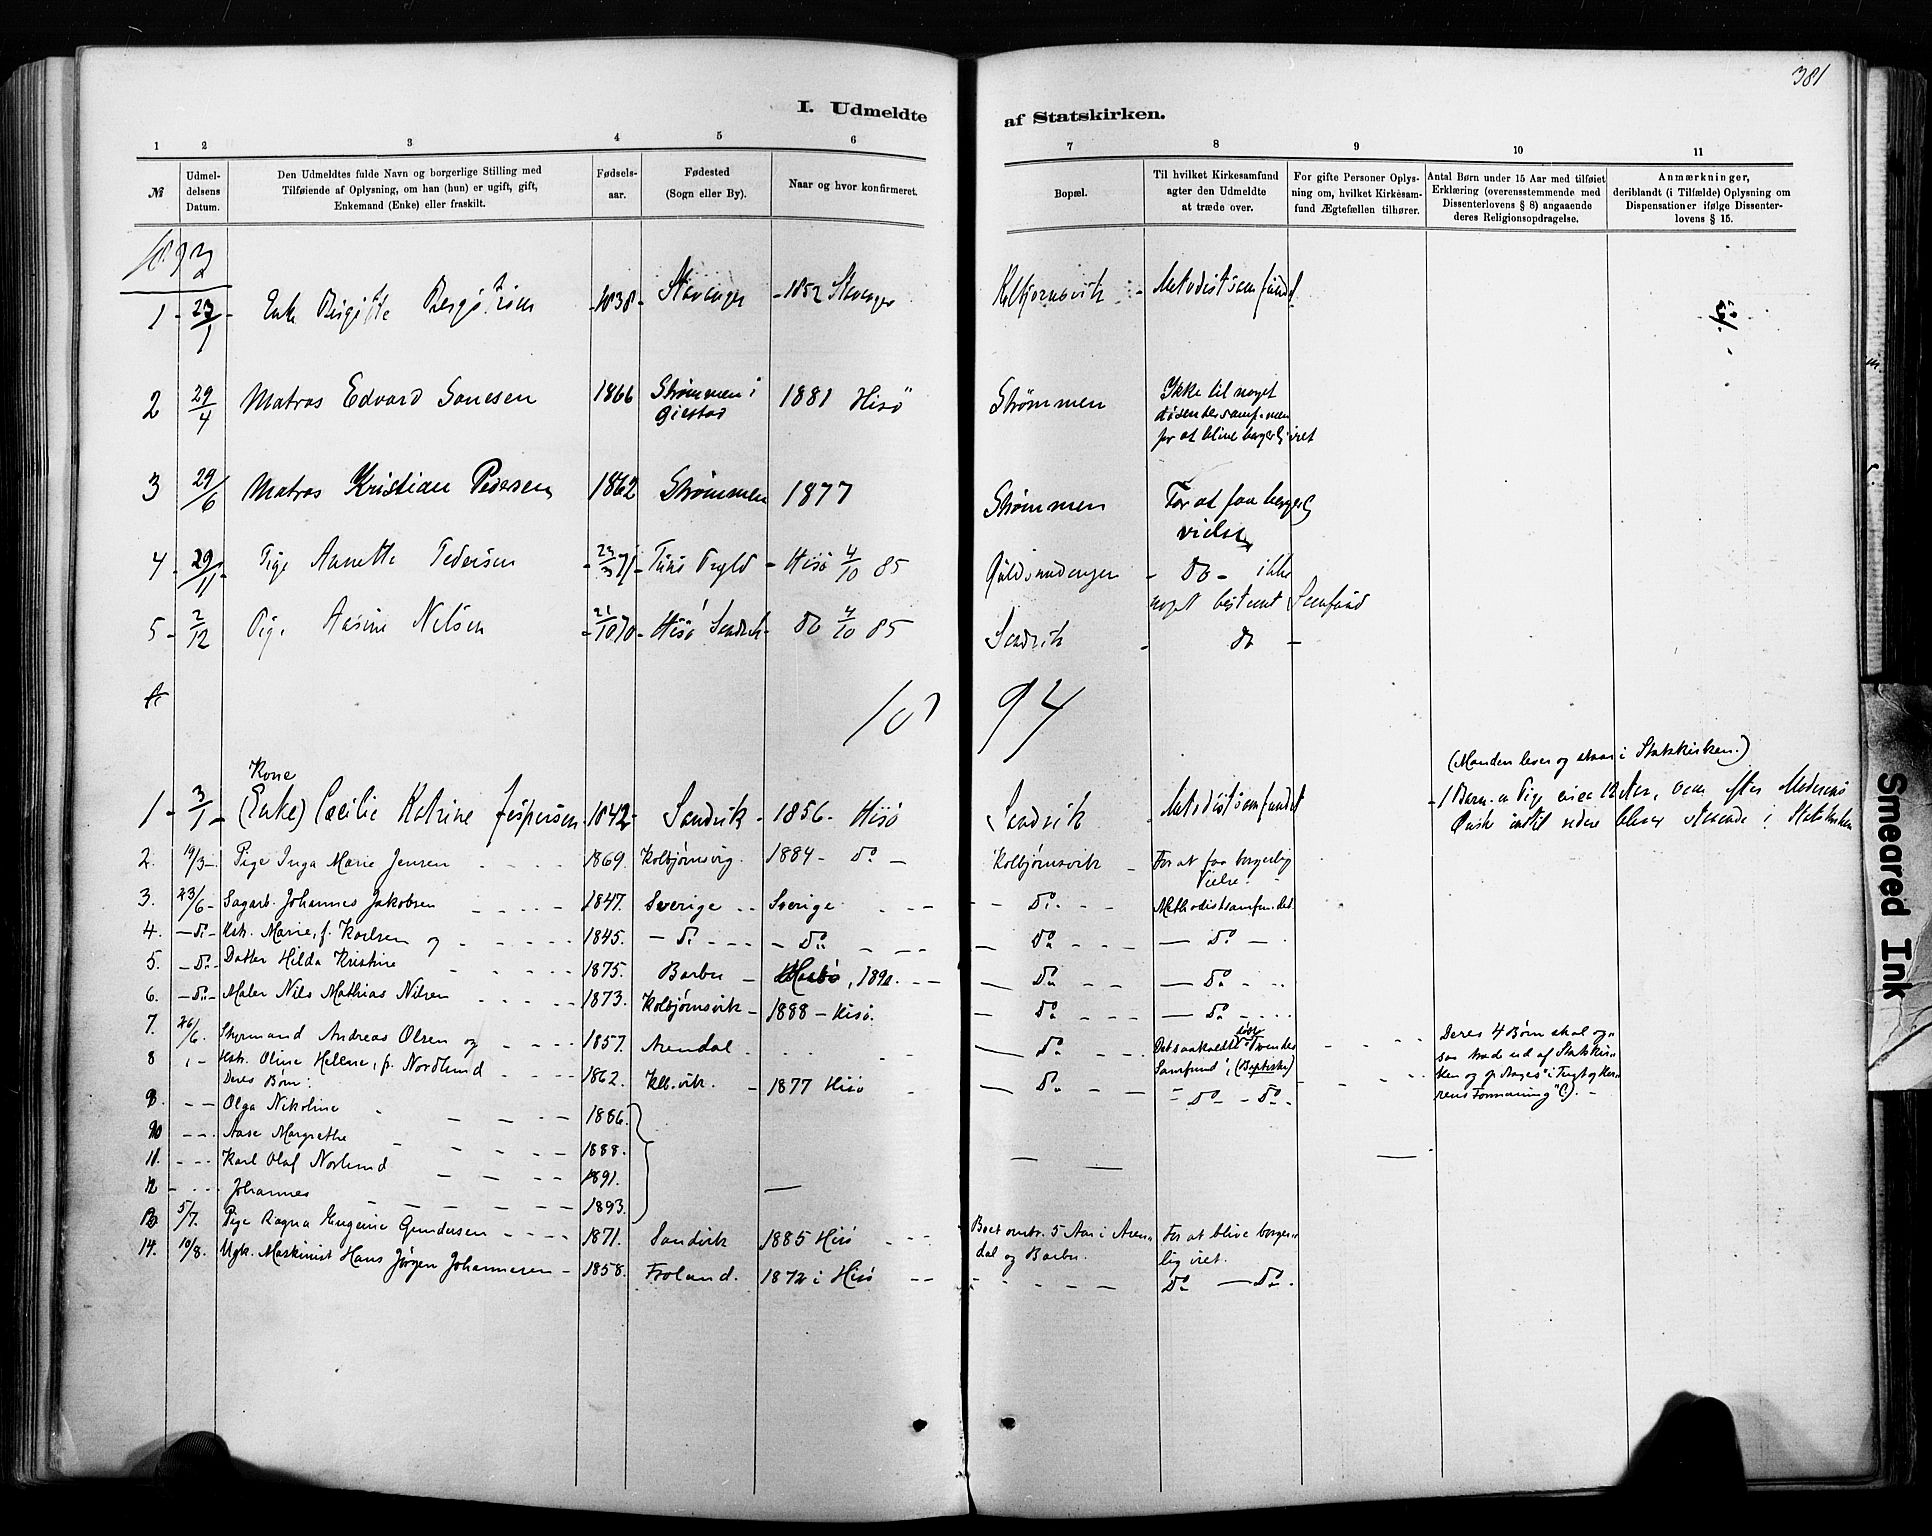 381
I. Udmeldte af Statskirken.
1 2 3 4 5 6 7 8 9 10 11
№
Udmel-
delsens
Datum.
Den Udmeldtes fulde Navn og borgerlige Stilling med
Tilføiende af Oplysning, om han (hun) er ugift, gift,
Enkemand (Enke) eller fraskilt.
Fødsels-
aar.
Fødested
(Sogn eller By).
Naar og hvor konfirmeret.
Bopæl.
Til hvilket Kirkesamfund
agter den Udmeldte
at træde over.
For gifte Personer Oplys-
ning om, hvilket Kirkesam-
fund Ægtefællen tilhører.
Antal Børn under 15 Aar med tilføiet
Erklæring (overensstemmende med
Dissenterlovens § 8) angaaende
deres Religionsopdragelse.
Anmærkninger,
deriblandt (i Tilfælde) Oplysning om
Dispensationer ifølge Dissenter-
lovens § 15.
1893
1 - 23/1 - Enke Birgitte Bergstrøm - 1838 - Stavanger - 1852 Stavanger Kolbjørnsvik - Metodistsamfundet
2 29/4 Matros Edvard Sanesen 1866 Strømmen i Øiestad 1881 Hisö Strømmen Ikke til noget
dissentersamf. men
for at blive borgerlig viet
3 29/6 Matros Kristian Pedersen 1862 Strømmen 1877 Strømmen For at faa borgerlig
vielse
4 - 29/11 - Pige Annette Pedersen - 23/3 71 - - Hisö 4/10 85 - do - ikke
noget bestemt Samfund
5 - 2/12 Pige Aasine Nilsen - 21/10 70 - Hisö Sandvik - do 4/10 85 Sandvik - do -
1894
Kone
(Manden lever og staar i Statskirken.)
1 - 3/1 - (Enke) Cæcilie Katrine Jespersen - 1842 - Sandvik - 1856 - Hisö Sandvik Metodistsamfundet - 1 Barn en Pige circa 12 Aar, som efter Moderens
Ønske indtil videre bliver staaende i Statskirken
2. 19/3 - Pige Inga Marie Jensen 1869. Kolbjørnsvig. 1884 - do - Kolbjørnsvik - For at faa borgerlig
Vielse.
3. 23/6 - Sagarb. Johannes Jakobsen 1847. Sverige Sverige - do - Methodistsamfundet.
4. - do - Hstr. Marie, f. Karlsen og 1845. - do - - do - - do - - do -
5. - do - Datter Hilda Kristine 1875. Barbu - Hisö, 1890. - do - - do -
6. - do - Maler Nils Mathias Nilsen 1873. Kolbjørnsvik - 1888 - Hisö. - do - - do -
7. 26/6. Styrmand Andreas Olsen og 1857. Arendal - do - Det saakaldte "døbte Troendes
Samfund"; (Baptister)
Deres 4 Børn skal og-
saa træde ud af Statskir-
ken og opdrages "i Tugt og Her-
rens Formaning" (!). -
8 Hstr. Oline Hellene, f. Nordlund 1862. Klb.vik. - 1877 Hisö - do - - do - do -
Deres Børn:
9. Olga Nikoline 1886.
10 Aase Margrethe 1888.
11. Karl Olaf Norlund 1891.
12 Johannes 1893.
13 5/7. Pige Ragna Eugenie Gundersen 1871. Sandvik 1885 Hisö Boet omtr. 5 Aar i Aren-
dal og Barbu. For at blive borger-
lig viet.
14. 10/8. Ugk. Maskinist Hans Jørgen Johannesen - 1858. Froland. 1872 i Hisö do - do -
Smeared Ink